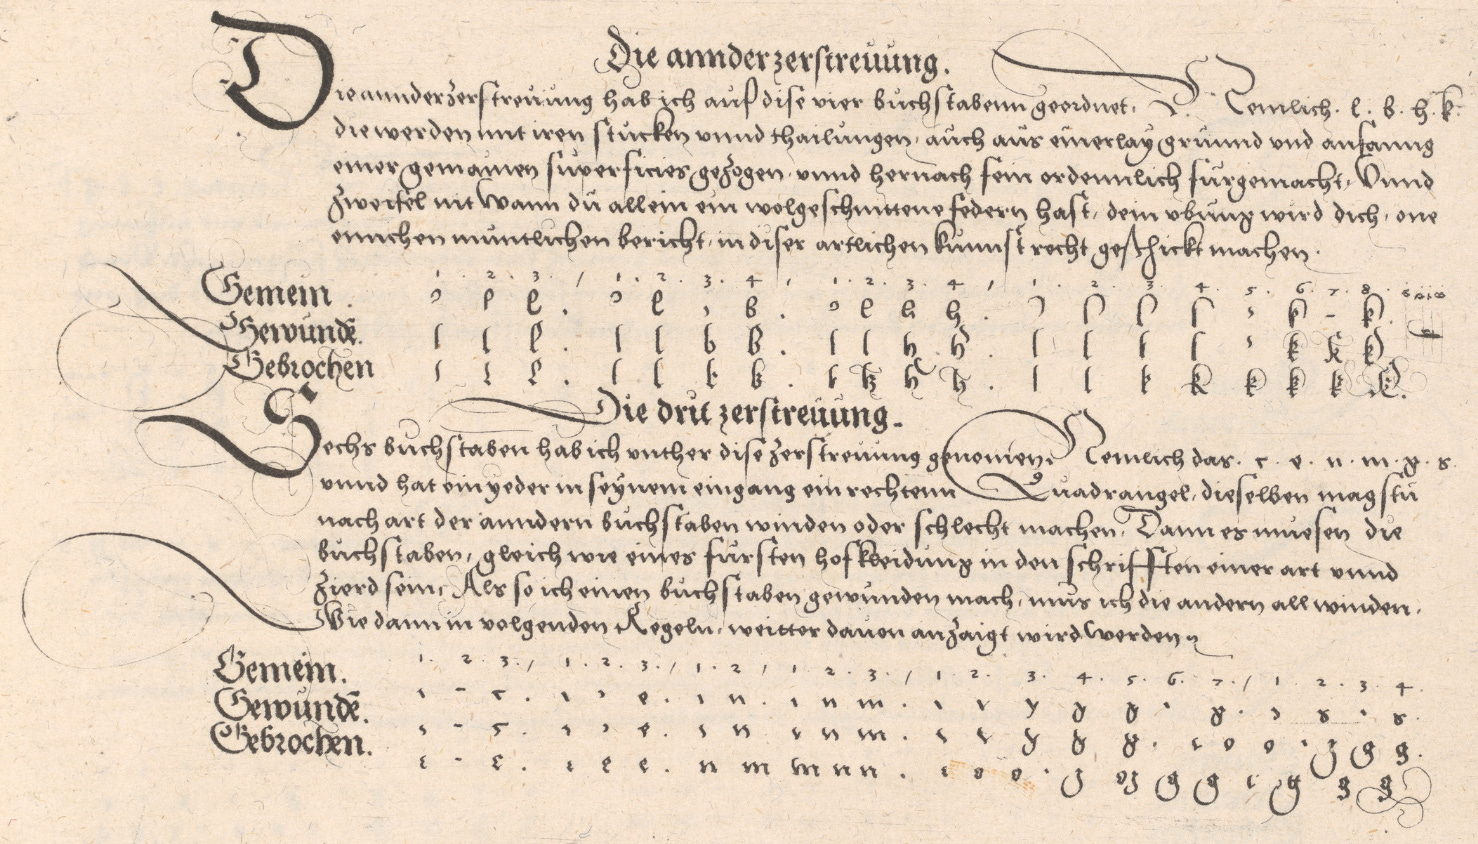 Die annder zerstreüung.
Die annder zerstreüung hab ich auf dise vier buchstabenn geordnet, Nemlich. l. b. h. k.
die werden mit iren stucken vnnd thailungen, auch aus einerlay grunnd vnd anfanng
einer gemainen superficies gezogen, vnnd hernach fein ordennlich fürgemacht, Vnnd
zweifel nit Wann du allein ein wolgeschnittene federn hast, dein vbung wird dich, one
ennichen muntlichen bericht, in diser artlichen kunnst recht geschickt machen.
1. 2. 3. / 1. 2. 3. 4. / 1. 2. 3. 4. / 1. 2. 3. 4. 5. 6. 7. 8.
Gemein.
Gewundē.
Gebrochen
Die drit zerstreüung.
Sechs buchstaben hab ich vnther dise zerstreüung genomen, Nemlich das. c. e. n. m. g. s.
vnnd hat ein yeder in seynem eingang ein rechtenn Quadrangel, dieselben magstu
nach art der anndern buchstaben winden oder schlecht machen, Dann es muesen die
buchstaben, gleich wie eines fürsten hofkleidung in den schrifften einer art vnnd
zierd sein, Als so ich einen buchstaben gewunden mach, mus ich die andern all winden,
Wie dann in volgenden Regeln, weitter dauon anzaigt wird werden
1. 2. 3. / 1. 2. 3. / 1. 2. / 1. 2. 3. / 1. 2. 3. 4. 5. 6. 7. / 1. 2. 3. 4.
Gemein.
Gewundē.
Gebrochen.